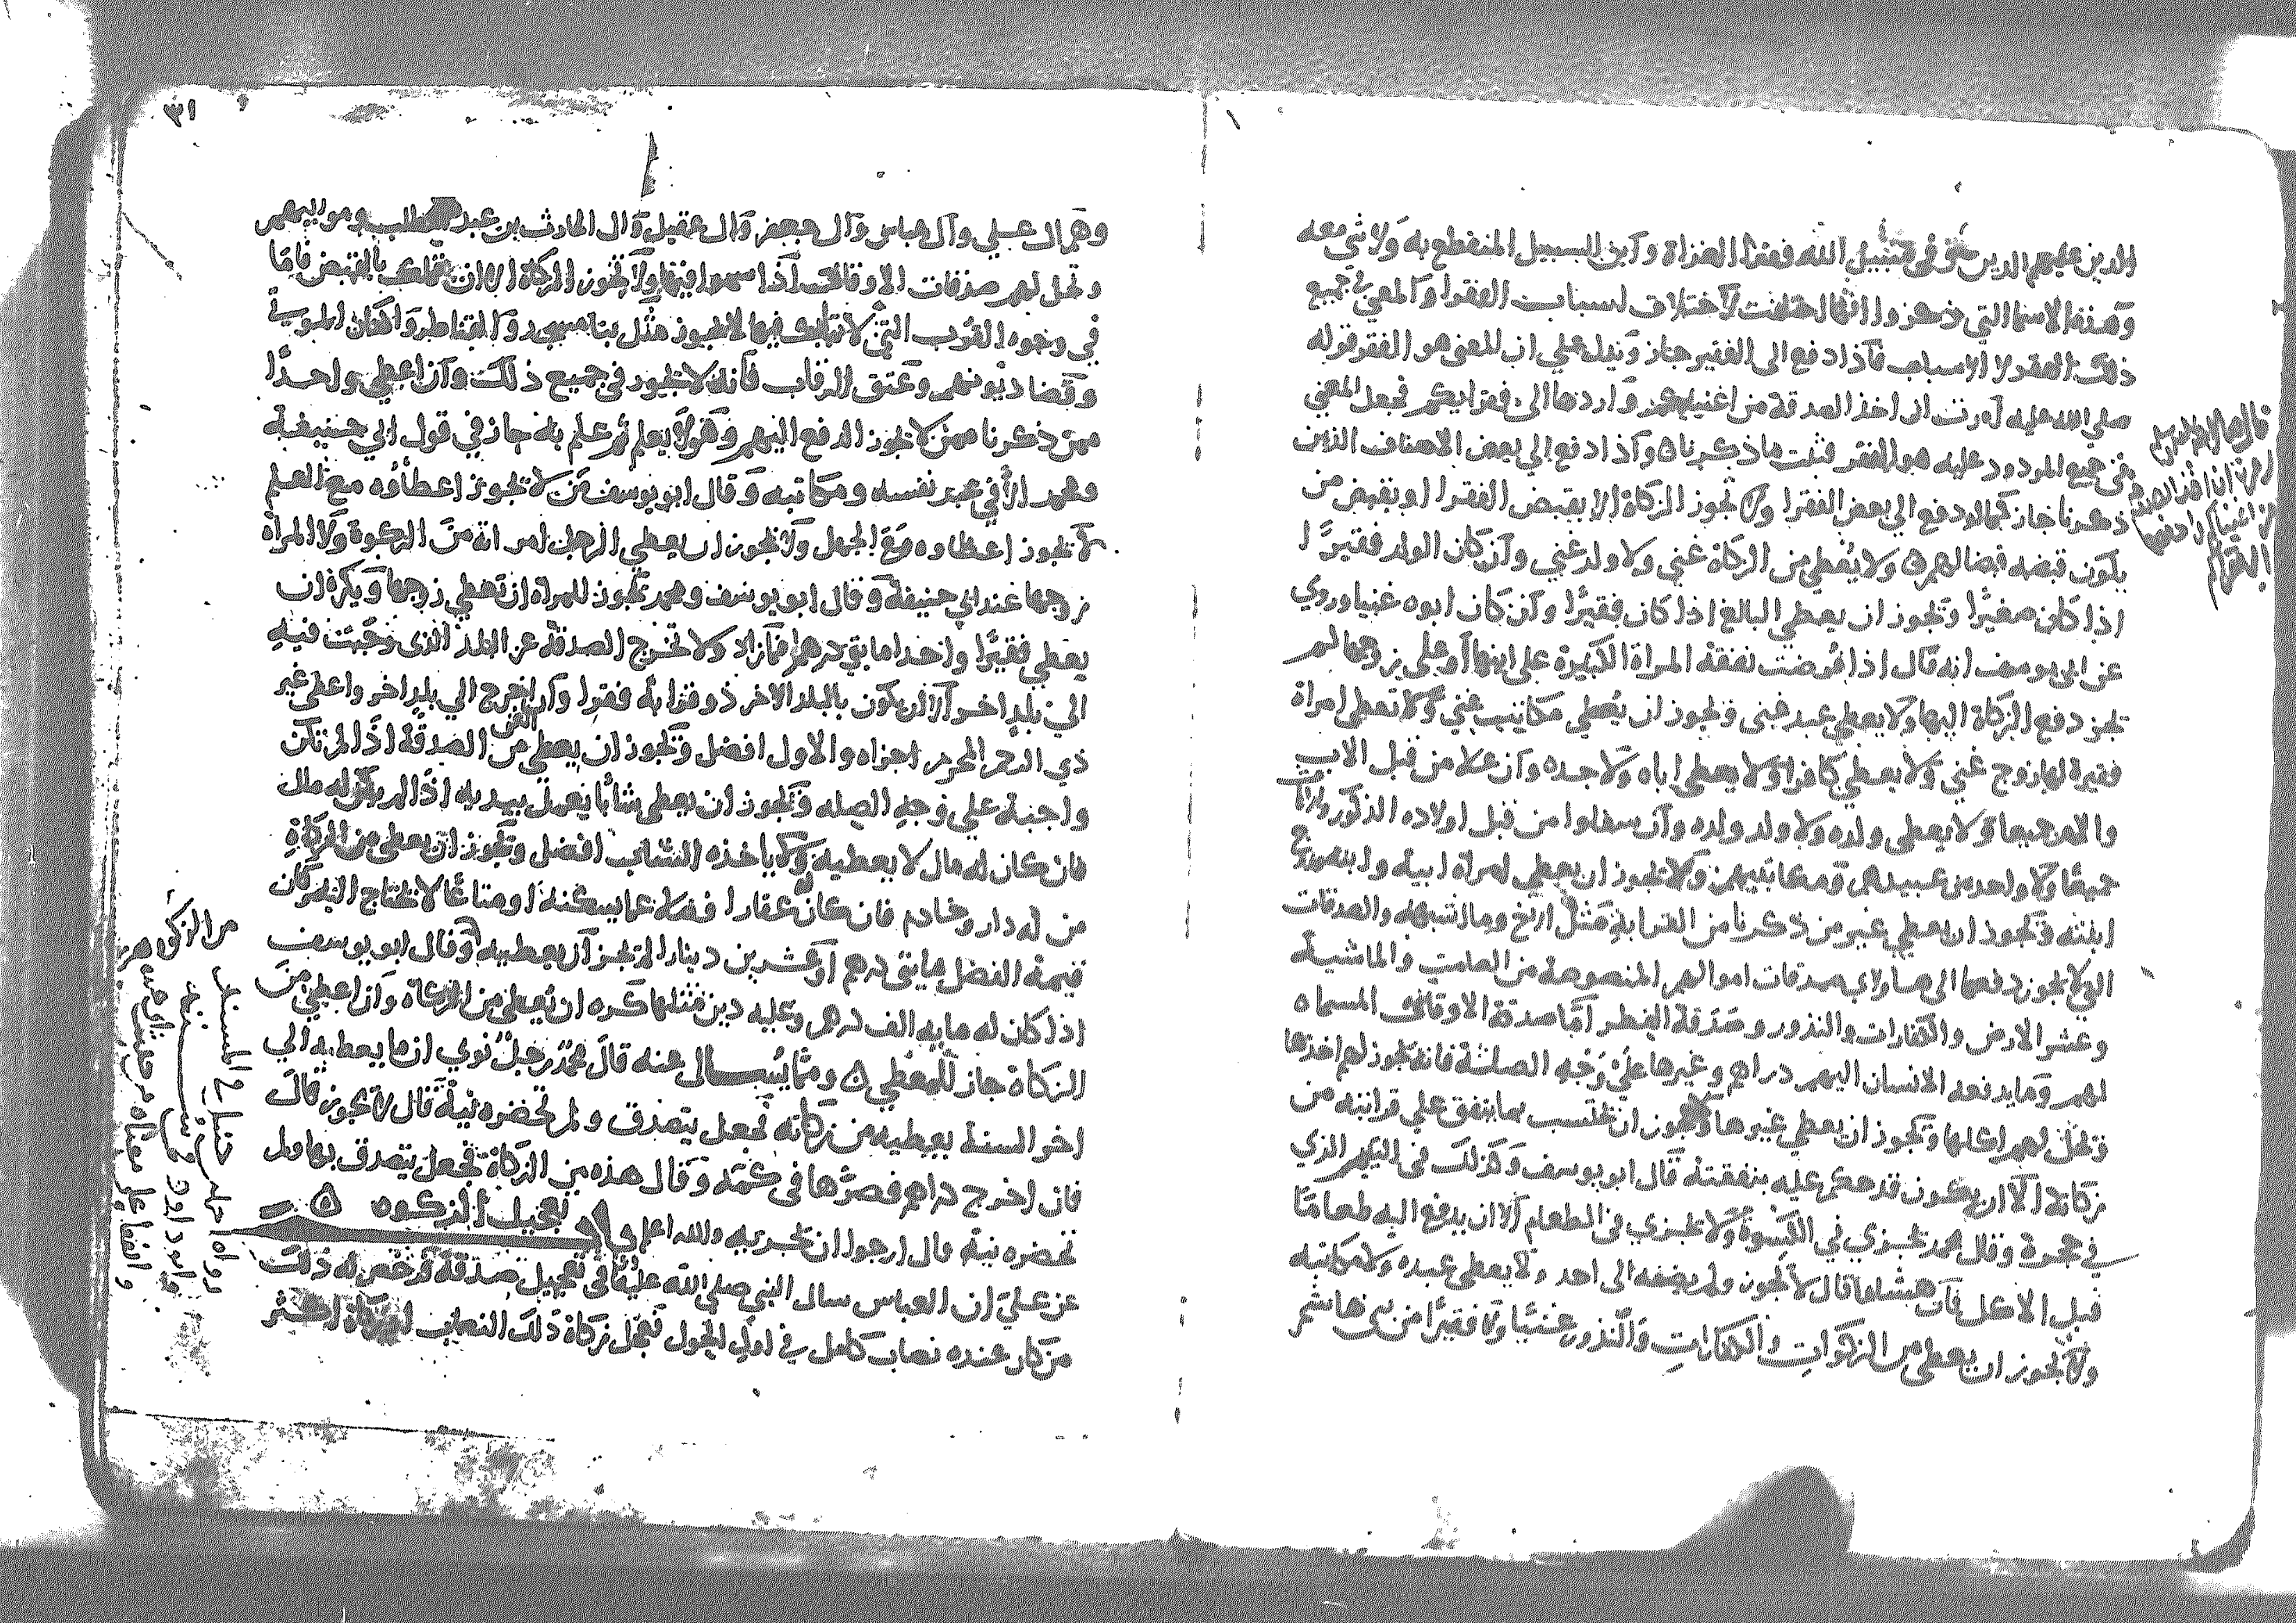 الذين عليهم الدين وفى سبيل الله فقرا الغزاة وابن السبيل المنقطع به ولا شي معه
وهذه الاسما التي ذكروا انما اختلفت لاختلاف اسباب الفقرا والمعني في جميع
ذلك الفقر لا الاسباب فاذا دفع الى الفقير جاز ويدل علي ان المعنى هو الفقر قوله
صلي الله عليه امرت ان اخذ الصدقة من اغنيايكم واردها الى فقرايكم فجعل المعني
في جميع المردود عليه هو الفقر فثبت ماذكرناه واذا دفع الي بعض الاصناف الذين
ذكرنا جاز كما لو دفع الي بعض الفقرا ولا تجوز الزكاة الا بقبض الفقرا او بقبض من
يكون قبضه قبضا لهم ولا يعطي من الزكاة غني ولا ولد غني وان كان الولد فقيرا
اذا كان صغيرا وتجوز ان يعطي البالغ اذا كان فقيرا وان كان ابوه غنيا وروي
عن ابى يوسف انه قال اذا فرضت نفقة المراة الكبيرة على ابنها او على زوجها لم
تجز دفع الزكاة اليها ولا يعطي عبد غنى وتجوز ان يعطي مكاتب غني ولا تعطى امراة
فقيرة لها زوج غني ولا يعطي كافرا ولا يعطى اباه ولا جده وان علا من قبل الاب
والام جميعا ولا يعطى ولده ولا ولد ولده وان سفلوا من قبل اولاده الذكور والاناث
جميعا ولا واحد من عبيدهم ومكاتبيهم ولا تجوز ان يعطي امراة ابيه ولا زوج
ابنته وتجوز ان يعطي غير من ذكرنا من القرابة مثل الاخ وما اشبهه والصدقات
التي لا تجوز دفعها الى هاولاي صدقات اموالهم المنصوصة من الصامت والماشية
وعشر الارض والكفارات والنذور وصدقة الفطر اما صدقة الاوقاف المسماه
لهم وما يدفعه الانسان اليهم دراهم وغيرها علي وجه الصلة فانه تجوز لهم اخذها
وتحل لهم اكلها وتجوز ان يعطي غيرها ولا تجوز ان تحتسب بما ينفق علي قرابته من
زكاته الا ان يكون قد حكم عليه بنفقته قال ابو يوسف وكذلك فى اليتيم الذي
في حجره وقال محمد تجزي في الكسوة ولا تجزي فى الطعام الا ان يدفع اليه طعاما
قبل الاكل فان هشاما قال لا تجوز ولم يضفه الى احد ولا يعطى عبده ولا مكاتبه
ولا تجوز ان يعطى من الزكوات والكفارات والنذور غنيا ولا فقيرا من بنى هاشم
قال صلى الله عليه وسلم
امرت ان اخذ الصدقة
من اغنيايكم واردها
الى فقرايكم
٣١
وهم ال علي وآل عباس وآل جعفر وآل عقيل وآل الحارث بن عبد المطلب ومواليهم
وتحل لهم صدقات الاوقاف اذا سموا فيها ولا تجوز الزكاة الا ان تملك بالقبض فاما
في وجوه القرب التي لا تمليك فيها لا تجوز مثل بنا مسجد والقناطر واكفان الموتى
وقضا ديونهم وعتق الرقاب فانه لا تجوز فى جميع ذلك وان اعطي واحدا
ممن ذكرنا ممن لا تجوز الدفع اليهم وهو لا يعلم ثم علم به جاز في قول ابي حنيفة
ومحمد الا في عبد نفسه ومكاتبه وقال ابو يوسف من لا تجوز اعطاؤه مع العلم
لا تجوز اعطاوه مع الجهل ولا تجوز ان يعطي الرجل امراته من الزكوة ولا المراة
زوجها عند ابي حنيفة وقال ابو يوسف ومحمد تجوز للمراة ان تعطي زوجها ويكره ان
يعطي فقيرا واحدا مايتي درهم فما زاد ولا تخرج الصدقة عن البلد الذى وجبت فيه
الى بلد اخر الا ان يكون بالبلد الاخر ذو قرابة فقرا وان اخرج الي بلد اخر واعطى غير
ذي الرحم المحرم اجزاه والاول افضل وتجوز ان يعطى من الغنى الصدقة اذا لم تكن
واجبة علي وجه الصله وتجوز ان يعطى شابا يعمل بيديه اذا لم يكن له مال
فان كان له مال لا يعطيه ولا ياخذه الشاب افضل وتجوز ان يعطى من الزكاة
من له دار وخادم فان كان عقارا فضلا عما يسكنه او متاعا لا تحتاج اليه وكان
قيمة الفضل مايتي درهم او عشرين دينارا لم تجز ان يعطيه وقال ابو يوسف
اذا كان له مايه الف درهم وعليه دين مثلها كره ان يعطى من الزكاة وان اعطي من
الزكاة جاز للمعطي ومما يسال عنه قال محمد رجل نوي ان ما يعطيه الي
اخر السنة يعطيه من زكاته فجعل يتصدق ولم تحضره نية قال لا تجوز قال
فان اخرج دراهم فصرها فى كمه وقال هذه من الزكاة فجعل يتصدق بها ولم
تحضره نية قال ارجوا ان تجزيه والله اعلم باب تعجيل الزكوه
عن علي ان العباس سال النبي صلى الله عليه في تعجيل صدقة فرخص له ذلك
من كان عنده نصاب كامل في اول الحول فعجل زكاة ذلك النصاب او زكاة اكثر
رواه احمد بن حنبل في المسند
وابو داود في سننه